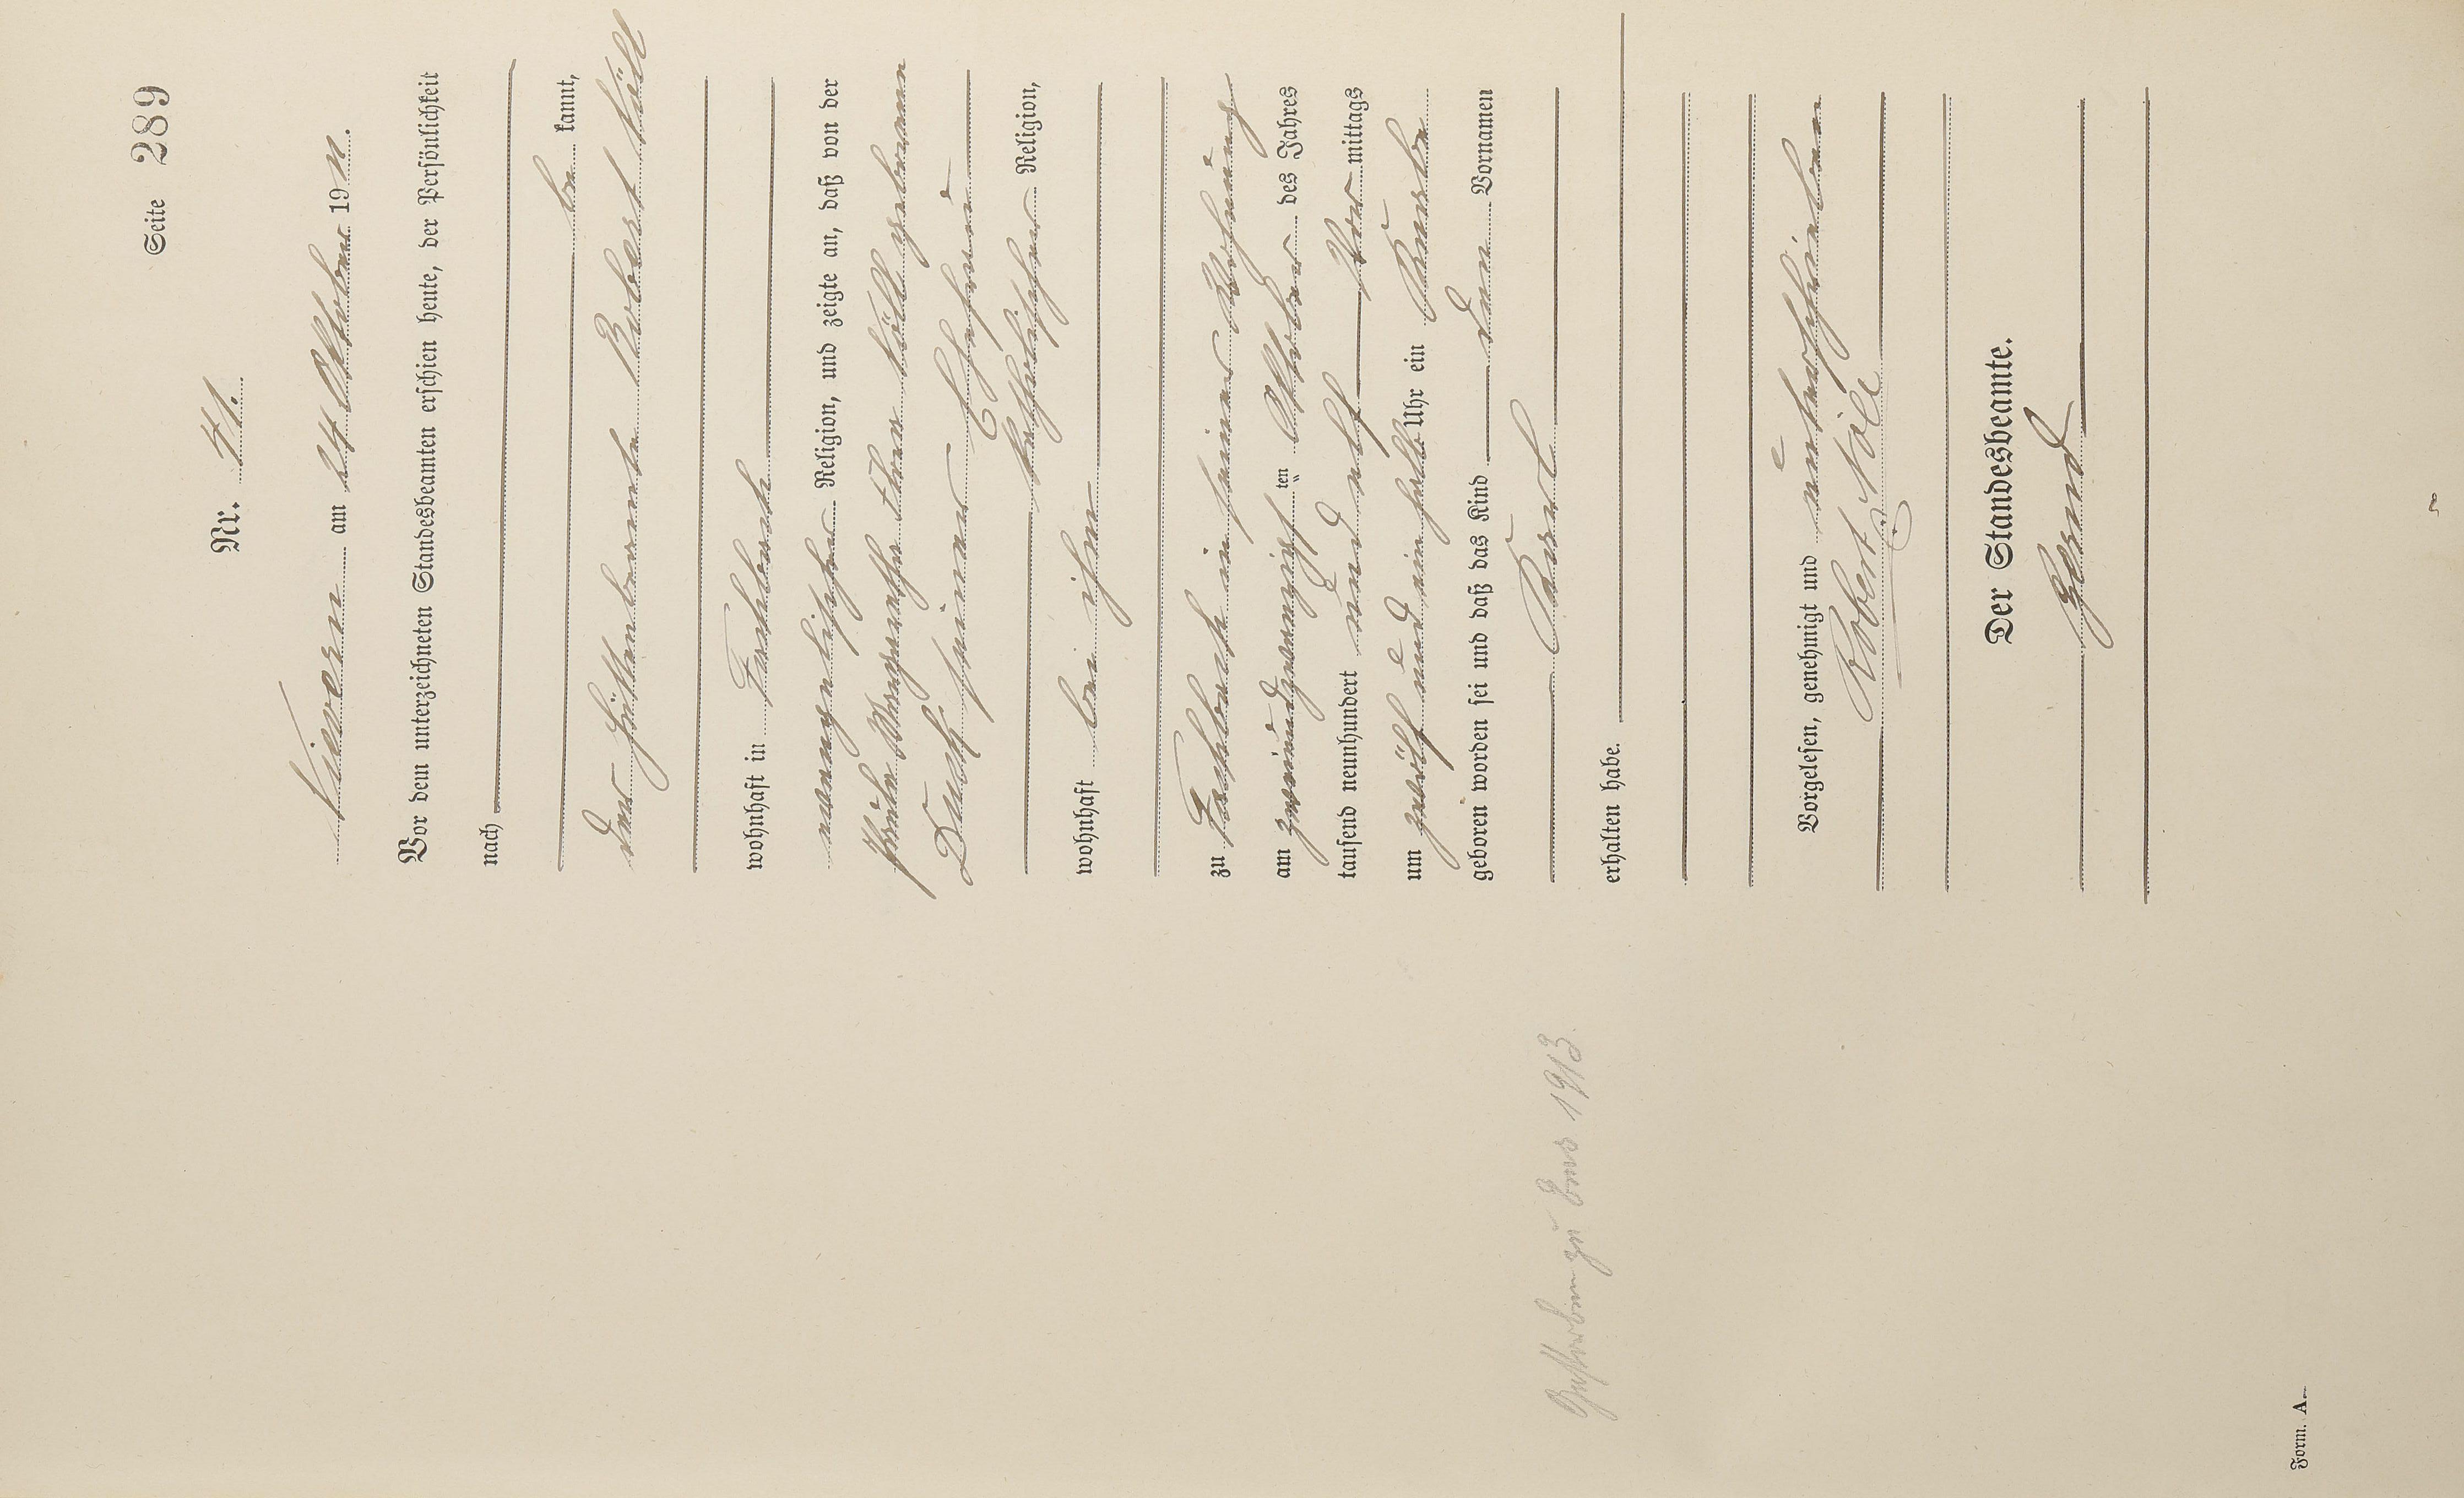 Seite 289
Nr. 41.
Nievern am 24 Oktober 1911.
Vor dem unterzeichneten Standesbeamten erschien heute, der Persönlichkeit
nach
be kannt,
der Hüttenbeamte Robert Nöll
wohnhaft in Fachbach
evangelischer Religion, und zeigte an, daß von der
Paula Margaretha Nöll geborenen
seiner Ehefrau
katholischer Religion,
wohnhaft bei ihm
zu Fachbach in seiner Wohnung
am zweiundzwanzigsten Oktober des Jahres
tausend neunhundert und elf Vor mittags
um zwölf und ein halb Uhr ein Knabe
geboren worden sei und daß das Kind den Vornamen
Karl
erhalten habe.
Vorgelesen, genehmigt und unterschrieben
Robert Nöll
Der Standesbeamte.
Gestorben zu Ems 1913.
Form. A.